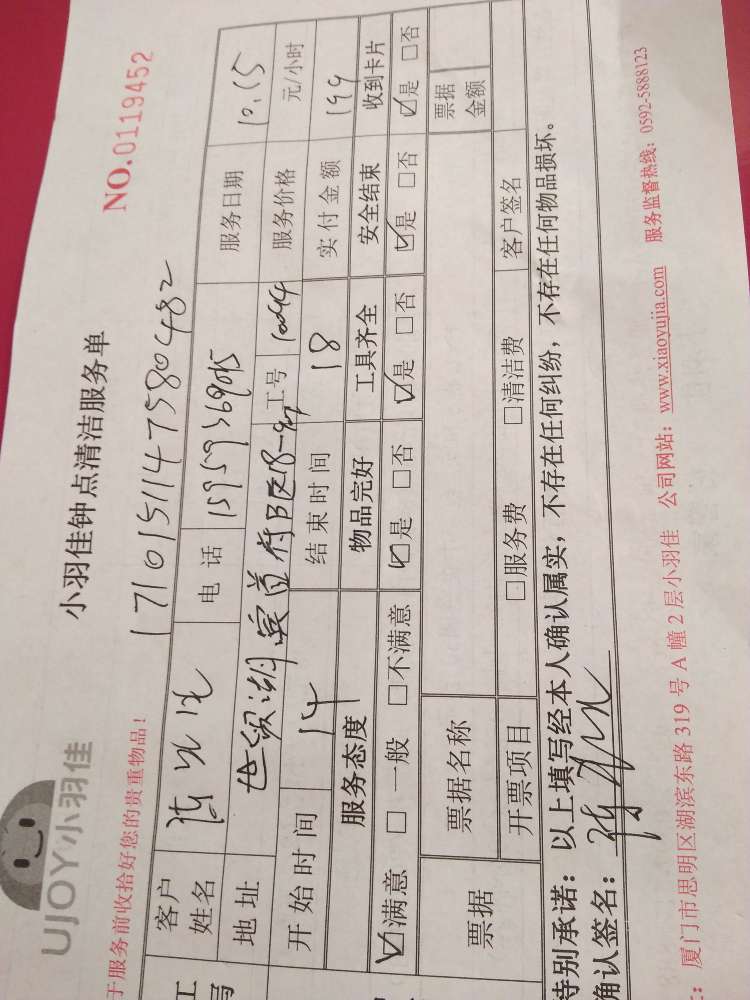 UJOY小羽佳
小羽佳钟点清洁服务单
NO.0119452
于服务前收拾好您的贵重物品!
1710151147580482
客户姓名
电话 15959369015 服务日期 10.15
地址
工号 服务价格 元/小时
开始时间 14 结束时间 18 实付金额 199
服务态度 物品完好 工具齐全 安全结束 收到卡片
☑满意 □一般 □不满意 ☑是 □否 ☑是 □否 ☑是 □否 ☑是 □否
票据 票据名称 票据金额
开票项目 □服务费 □清洁费 客户签名
特别承诺:以上填写经本人确认属实,不存在任何纠纷,不存在任何物品损坏。
确认签名:
厦门市思明区湖滨东路 319 号 A 幢 2 层小羽佳 公司网站:www.xiaoyujia.com 服务监督热线:0592-5888123